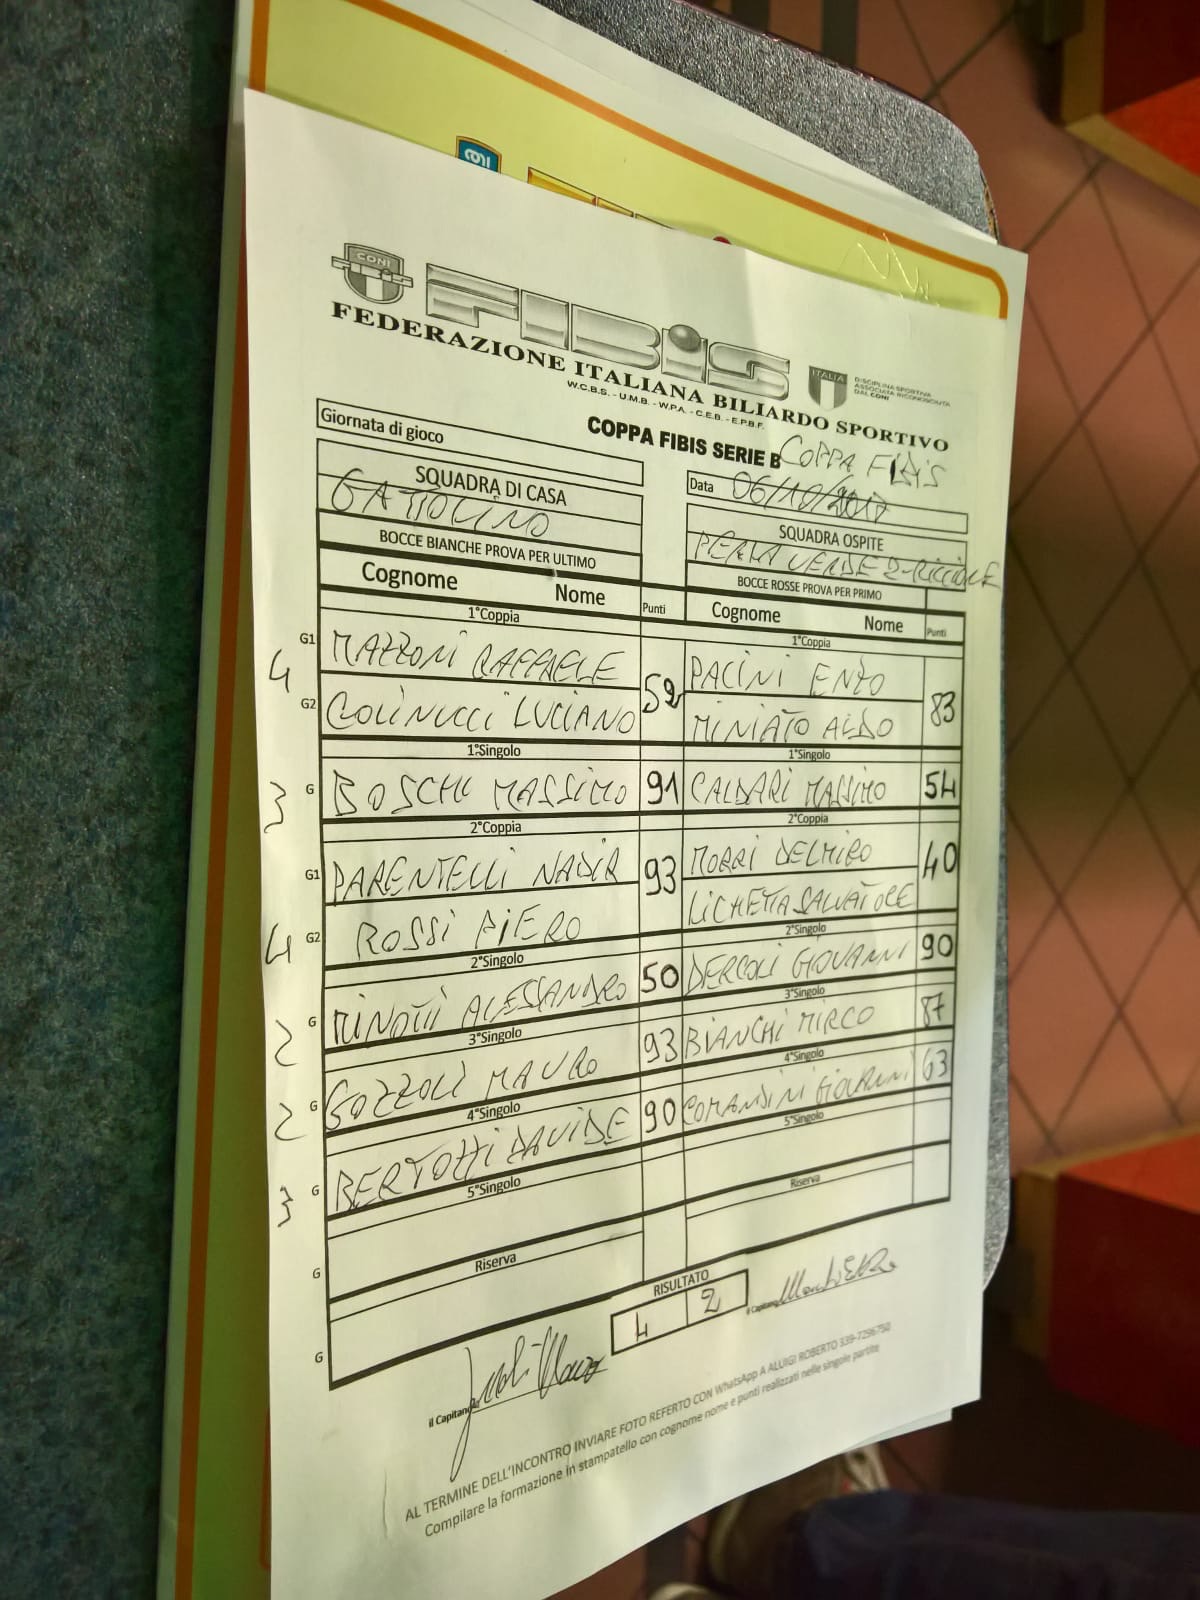 CONI
CONI
FIBiS
ITALIA
DISCIPLINA SPORTIVA
ASSOCIATA RICONOSCIUTA
DAL CONI
FEDERAZIONE ITALIANA BILIARDO SPORTIVO
W.C.B.S. - U.M.B. - W.P.A. - C.E.B. - E.P.B.F.
COPPA FIBIS SERIE B COPPA FIBIS
Giornata di gioco
Data 06/10/2017
SQUADRA DI CASA
SQUADRA OSPITE
GATTOLINO
PERLA VERDE 2-RICCIONE
BOCCE BIANCHE PROVA PER ULTIMO
BOCCE ROSSE PROVA PER PRIMO
Cognome Nome Punti Cognome Nome Punti
1°Coppia 1°Coppia
4 G1 MAZZONI RAFFAELE 59 PACINI ENZO 83
G2 COLINUCCI LUCIANO MINIATO ALDO
1°Singolo 1°Singolo
3 G BOSCHI MASSIMO 91 CALDARI MASSIMO 54
2°Coppia 2°Coppia
G1 PARENTELLI NADIR 93 MORRI DELMIRO 40
4 G2 ROSSI PIERO LICHETTA SALVATORE
2°Singolo 2°Singolo
2 G MINOTTI ALESSANDRO 50 DERCOLI GIOVANNI 90
3°Singolo 3°Singolo
2 G GOZZOLI MAURO 93 BIANCHI MIRCO 87
4°Singolo 4°Singolo
3 G BERTOTTI DAVIDE 90 COMANDINI GIOVANNI 63
5°Singolo 5°Singolo
G
Riserva Riserva
G
RISULTATO
4 2
il Capitano
il Capitano
AL TERMINE DELL'INCONTRO INVIARE FOTO REFERTO CON WhatsApp A ALUIGI ROBERTO 339-7296750
Compilare la formazione in stampatello con cognome nome e punti realizzati nelle singole partite